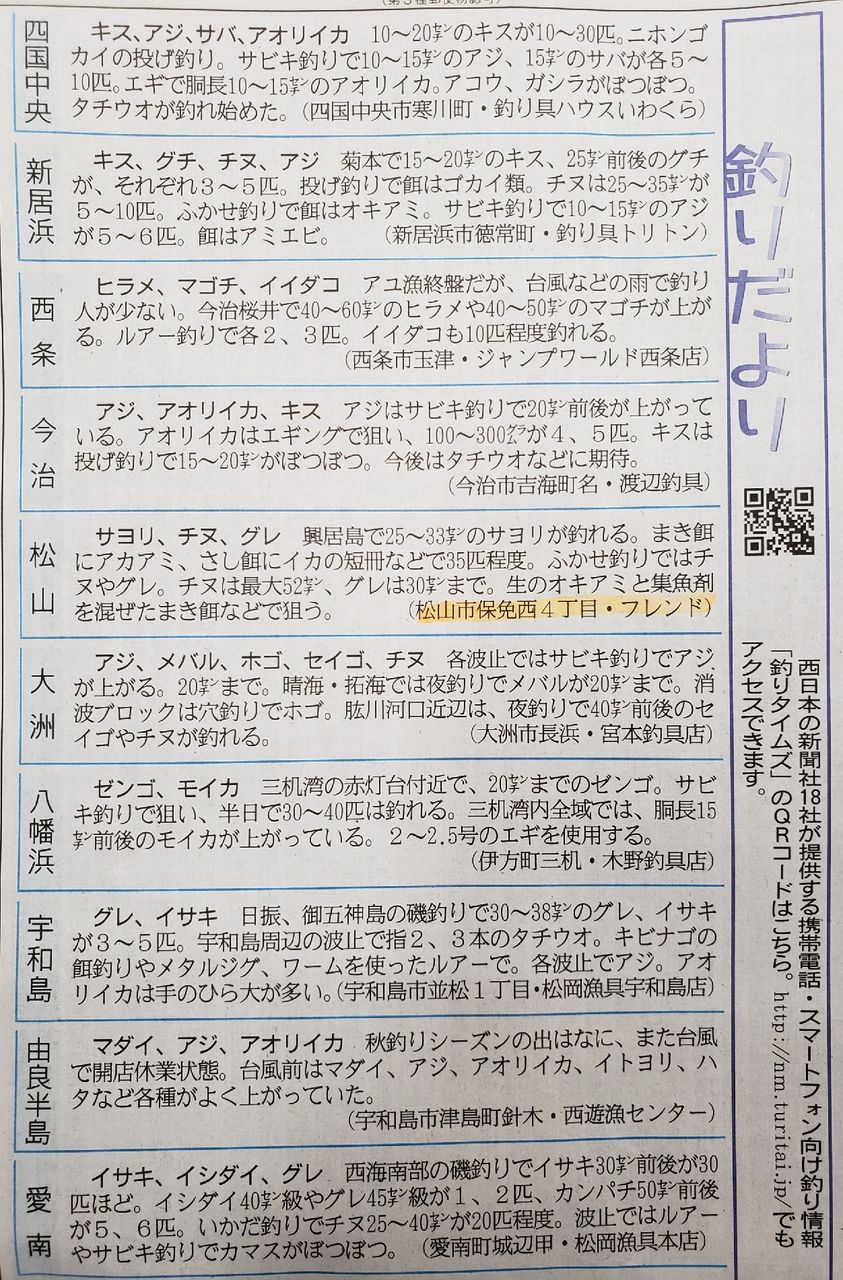 (第3種郵便物認可)
釣りだより
西日本の新聞社18社が提供する携帯電話・スマートフォン向け釣り情報
「釣りタイムズ」のQRコードはこちら。http://nm.turitai.jp/でも
アクセスできます。
四国中央
キス、アジ、サバ、アオリイカ 10〜20㌢のキスが10〜30匹。ニホンゴ
カイの投げ釣り。サビキ釣りで10〜15㌢のアジ、15㌢のサバが各5〜
10匹。エギで胴長10〜15㌢のアオリイカ。アコウ、ガシラがぽつぽつ。
タチウオが釣れ始めた。(四国中央市寒川町・釣り具ハウスいわくら)
新居浜
キス、グチ、チヌ、アジ 菊本で15〜20㌢のキス、25㌢前後のグチ
が、それぞれ3〜5匹。投げ釣りで餌はゴカイ類。チヌは25〜35㌢が
5〜10匹。ふかせ釣りで餌はオキアミ。サビキ釣りで10〜15㌢のアジ
が5〜6匹。餌はアミエビ。 (新居浜市徳常町・釣り具トリトン)
西条
ヒラメ、マゴチ、イイダコ アユ漁終盤だが、台風などの雨で釣り
人が少ない。今治桜井で40〜60㌢のヒラメや40〜50㌢のマゴチが上が
る。ルアー釣りで各2、3匹。イイダコも10匹程度釣れる。
(西条市玉津・ジャンプワールド西条店)
今治
アジ、アオリイカ、キス アジはサビキ釣りで20㌢前後が上がって
いる。アオリイカはエギングで狙い、100〜300㌘が4、5匹。キスは
投げ釣りで15〜20㌢がぽつぽつ。今後はタチウオなどに期待。
(今治市吉海町名・渡辺釣具)
松山
サヨリ、チヌ、グレ 興居島で25〜33㌢のサヨリが釣れる。まき餌
にアカアミ、さし餌にイカの短冊などで35匹程度。ふかせ釣りではチ
ヌやグレ。チヌは最大52㌢、グレは30㌢まで。生のオキアミと集魚剤
を混ぜたまき餌などで狙う。 (松山市保免西4丁目・フレンド)
大洲
アジ、メバル、ホゴ、セイゴ、チヌ 各波止ではサビキ釣りでアジ
が上がる。20㌢まで。晴海・拓海では夜釣りでメバルが20㌢まで。消
波ブロックは穴釣りでホゴ。肱川河口近辺は、夜釣りで40㌢前後のセ
イゴやチヌが釣れる。 (大洲市長浜・宮本釣具店)
八幡浜
ゼンゴ、モイカ 三机湾の赤灯台付近で、20㌢までのゼンゴ。サビ
キ釣りで狙い、半日で30〜40匹は釣れる。三机湾内全域では、胴長15
㌢前後のモイカが上がっている。2〜2.5号のエギを使用する。
(伊方町三机・木野釣具店)
宇和島
グレ、イサキ 日振、御五神島の磯釣りで30〜38㌢のグレ、イサキ
が3〜5匹。宇和島周辺の波止で指2、3本のタチウオ。キビナゴの
餌釣りやメタルジグ、ワームを使ったルアーで。各波止でアジ。アオ
リイカは手のひら大が多い。(宇和島市並松1丁目・松岡漁具宇和島店)
由良半島
マダイ、アジ、アオリイカ 秋釣りシーズンの出はなに、また台風
で開店休業状態。台風前はマダイ、アジ、アオリイカ、イトヨリ、ハ
タなど各種がよく上がっていた。
(宇和島市津島町針木・西遊漁センター)
愛南
イサキ、イシダイ、グレ 西海南部の磯釣りでイサキ30㌢前後が30
匹ほど。イシダイ40㌢級やグレ45㌢級が1、2匹、カンパチ50㌢前後
が5、6匹。いかだ釣りでチヌ25〜40㌢が20匹程度。波止ではルアー
やサビキ釣りでカマスがぽつぽつ。 (愛南町城辺甲・松岡漁具本店)